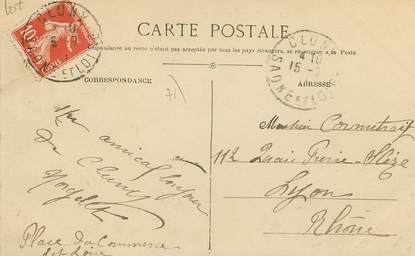 lot
CARTE POSTALE
Correspondance au recto n'est pas acceptée par tous les pays étrangers, se renseigner à la Poste
CORRESPONDANCE
ADRESSE
CLUNY
SAONE ET LOIRE
CLUNY
4 15
15
SAONE ET LOIRE
10
71
Un amical bonjour
de Cluny
Monsieur
112 Quai Pierre-Scize
Lyon
Rhône
Place du Commerce